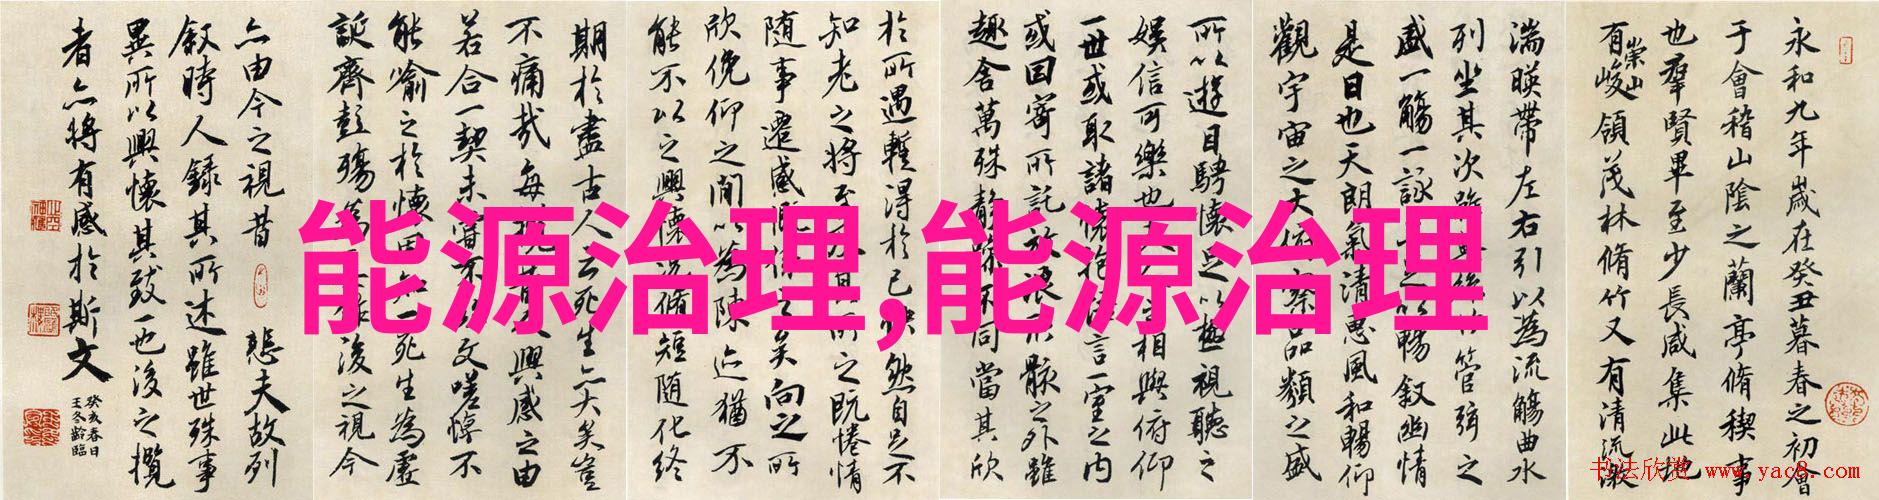 永和九年歲在癸丑暮春之初會
于會稽山陰之蘭亭脩稧事
也羣賢畢至少長咸集此地
有崇山峻領茂林脩竹又有清流激
湍暎帶左右引以為流觴曲水
列坐其次雖無絲竹管弦之
盛一觴一詠亦足以暢敘幽情
是日也天朗氣清惠風和暢仰
觀宇宙之大俯察品類之盛
所以遊目騁懷足以極視聽之
娛信可樂也夫人之相與俯仰
一世或取諸懷抱悟言一室之內
或因寄所託放浪形骸之外雖
趣舍萬殊靜躁不同當其欣
於所遇暫得於己怏然自足不
知老之將至及其所之既惓情
隨事遷感慨係之矣向之所
欣俛仰之閒以為陳迹猶不
能不以之興懷況脩短隨化終
期於盡古人云死生亦大矣豈
不痛哉每攬昔人興感之由
若合一契未嘗不臨文嗟悼不
能喻之於懷固知一死生為虛
誕齊彭殤為妄作後之視今
亦由今之視昔 悲夫故列
敘時人錄其所述雖世殊事
異所以興懷其致一也後之攬
者亦將有感於斯文
癸亥春日
王冬齡臨
能源治理,能源治理
书法欣赏 www.yac8.com